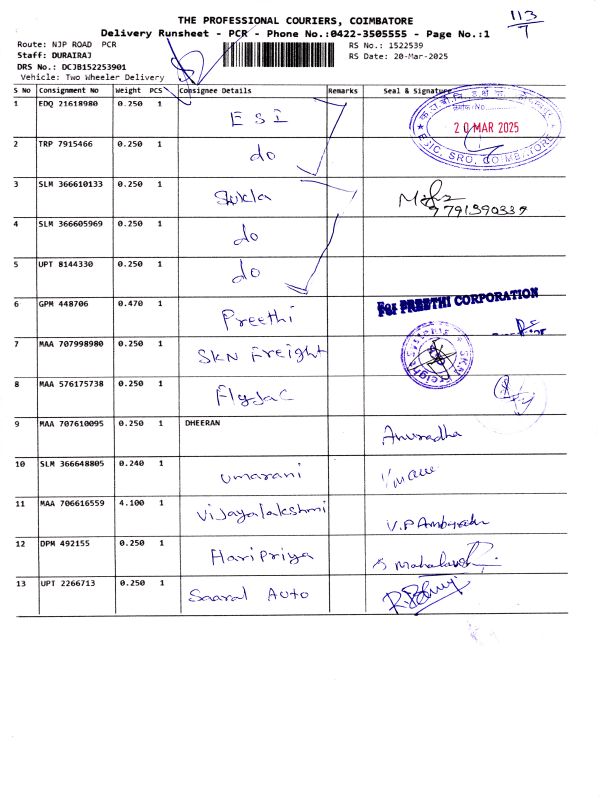 THE PROFESSIONAL COURIERS, COIMBATORE
113
7
Delivery Runsheet - PCR - Phone No.:0422-3505555 - Page No.:1
Route: NJP ROAD PCR
RS No.: 1522539
Staff: DURAIRAJ
RS Date: 20-Mar-2025
DRS No.: DCJB152253901
Vehicle: Two Wheeler Delivery
S No Consignment No Weight PCS Consignee Details Remarks Seal & Signature
1 EDQ 21618980 0.250 1 ESI
20 MAR 2025
ESIC, SRO, COIMBATORE
2 TRP 7915466 0.250 1 do
3 SLM 366610133 0.250 1 Sukla
9791590339
4 SLM 366605969 0.250 1 do
5 UPT 8144330 0.250 1 do
6 GPM 448706 0.470 1 Preethi For PREETHI CORPORATION
7 MAA 707998980 0.250 1 SKN Freight
8 MAA 576175738 0.250 1 Flyjac
9 MAA 707610095 0.250 1 DHEERAN Anuradha
10 SLM 366648805 0.240 1 umarani
11 MAA 706616559 4.100 1 Vijayalakshmi
12 DPM 492155 0.250 1 Haripriya
13 UPT 2266713 0.250 1 Saaral Auto